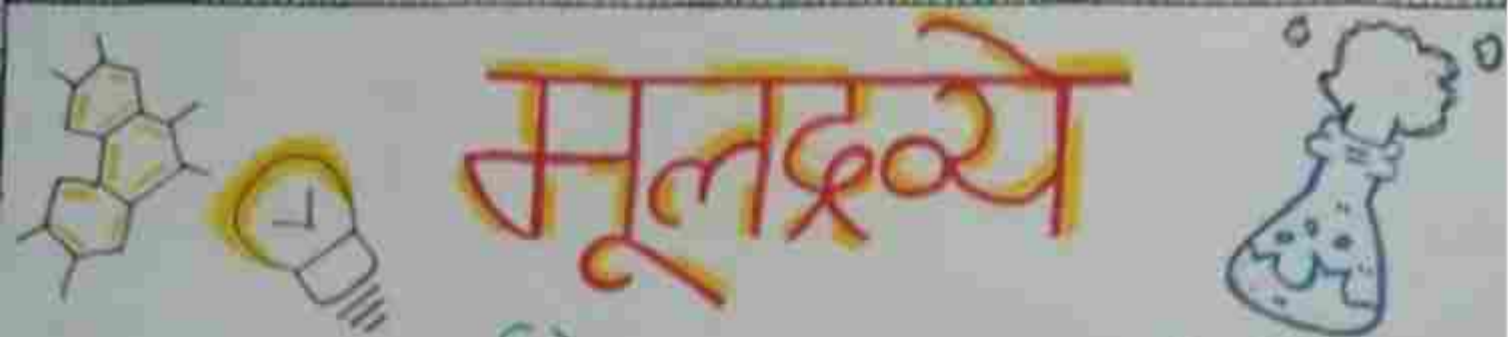 मूलद्रव्ये